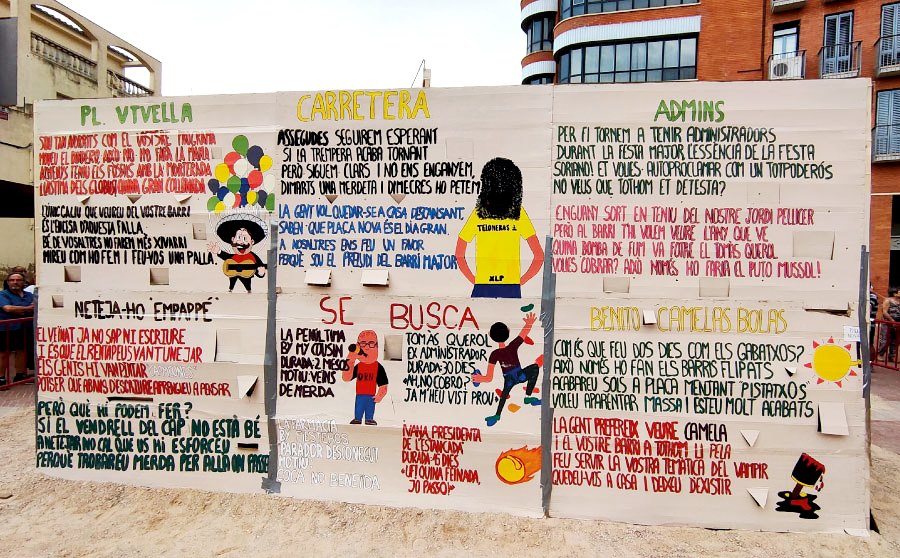 PL. VTVELLA
SOU TAN AVORRITS COM EL VOSTRE PROGRAMA
MOVEU EL DIUMENGE AIXÒ NO HO FARIA LA MARIA
LLASTIMA DELS GLOBUS QUINA GRAN COLLONADA
L'ÚNIC CALIU QUE VEUREU DEL VOSTRE BARRI
ÉS L'ENCESA D'AQUESTA FALLA,
BÉ DE VOSALTRES NO FAREM MÉS XIVARRI
MIREU COM HO FEM I FEU-VOS UNA PALLA.
CARRETERA
ASSEGUDES SEGUIREM ESPERANT
SI LA TREMPERA ACABA TORNANT
PERÒ SIGUEM CLARS I NO ENS ENGANYEM,
DIMARTS UNA MERDETA I DIMECRES HO PETEM
LA GENT VOL QUEDAR-SE A CASA DESCANSANT,
SABEN QUE PLAÇA NOVA ÉS EL DIA GRAN.
A NOSALTRES ENS FEU UN FAVOR
PERQUÈ SOU EL PRELUDI DEL BARRI MAJOR
TELONERAS
XLP
ADMINS
PER FI TORNEM A TENIR ADMINISTRADORS
DURANT LA FESTA MAJOR L'ESSÈNCIA DE LA FESTA
SORIANO! ET VOLIES AUTOPROCLAMAR COM UN TOTPODERÓS
NO VEUS QUE TOTHOM ET DETESTA?
ENGUANY SORT EN TENIU DEL NOSTRE JORDI PELLICER
PERÒ AL BARRI MAI VOLEM VEURE L'ANY QUE VE
QUINA BOMBA DE FUM VA FOTRE EL TOMÀS QUEROL
VOLIES COBRAR? AIXÒ NOMÉS HO FARIA EL PUTO MUSSOL!
NETEJA-HO "EMPAPPE"
EL VEÏNAT JA NO SAP NI ESCRIURE
I ÉS QUE EL RENTAPEUS VAN TUNEJAR
ELS GENIS HI VAN PINTAR
POTSER QUE ABANS D'ESCRIURE APRENGUEU A REPASAR
PERÒ QUÈ HI PODEM FER?
SI EL VENDRELL DEL CAP NO ESTÀ BÉ
A NETEJAR NO CAL QUE US HI ESFORCEU
PERQUÈ TROBAREU MERDA PER ALLÀ ON PASSEU
SE BUSCA
LA PENÚLTIMA
BY MY COUSIN
DURADA: 2 MESOS
MOTIU: VEÏNS
DE MERDA
TOMÀS QUEROL
EX ADMINISTRADOR
DURADA: 30 DIES
"AH, NO COBRO?
JA M'HEU VIST PROU"
LA FARTÀCIA
PARADOR DESCONEGUT
MOTIU:
COCA NO BENEÏDA
IVANA, PRESIDENTA
DE L'ESTANCADA
DURADA: 6 DIES
"UF! QUINA FEINADA,
JO PASSO!"
BENITO CAMELAS BOLAS
COM ÉS QUE FEU DOS DIES COM ELS GABATXOS?
AIXÒ NOMÉS HO FAN ELS BARRIS FLIPATS
ACABAREU SOLS A PLAÇA MENJANT PISTATXOS
VOLEU APARENTAR MASSA I ESTEU MOLT ACABATS
LA GENT PREFEREIX VEURE CAMELA
I EL VOSTRE BARRI A TOTHOM LI PELA
FEU SERVIR LA VOSTRA TEMÀTICA DEL VAMPIR
QUEDEU-VOS A CASA I DEIXEU D'EXISTIR